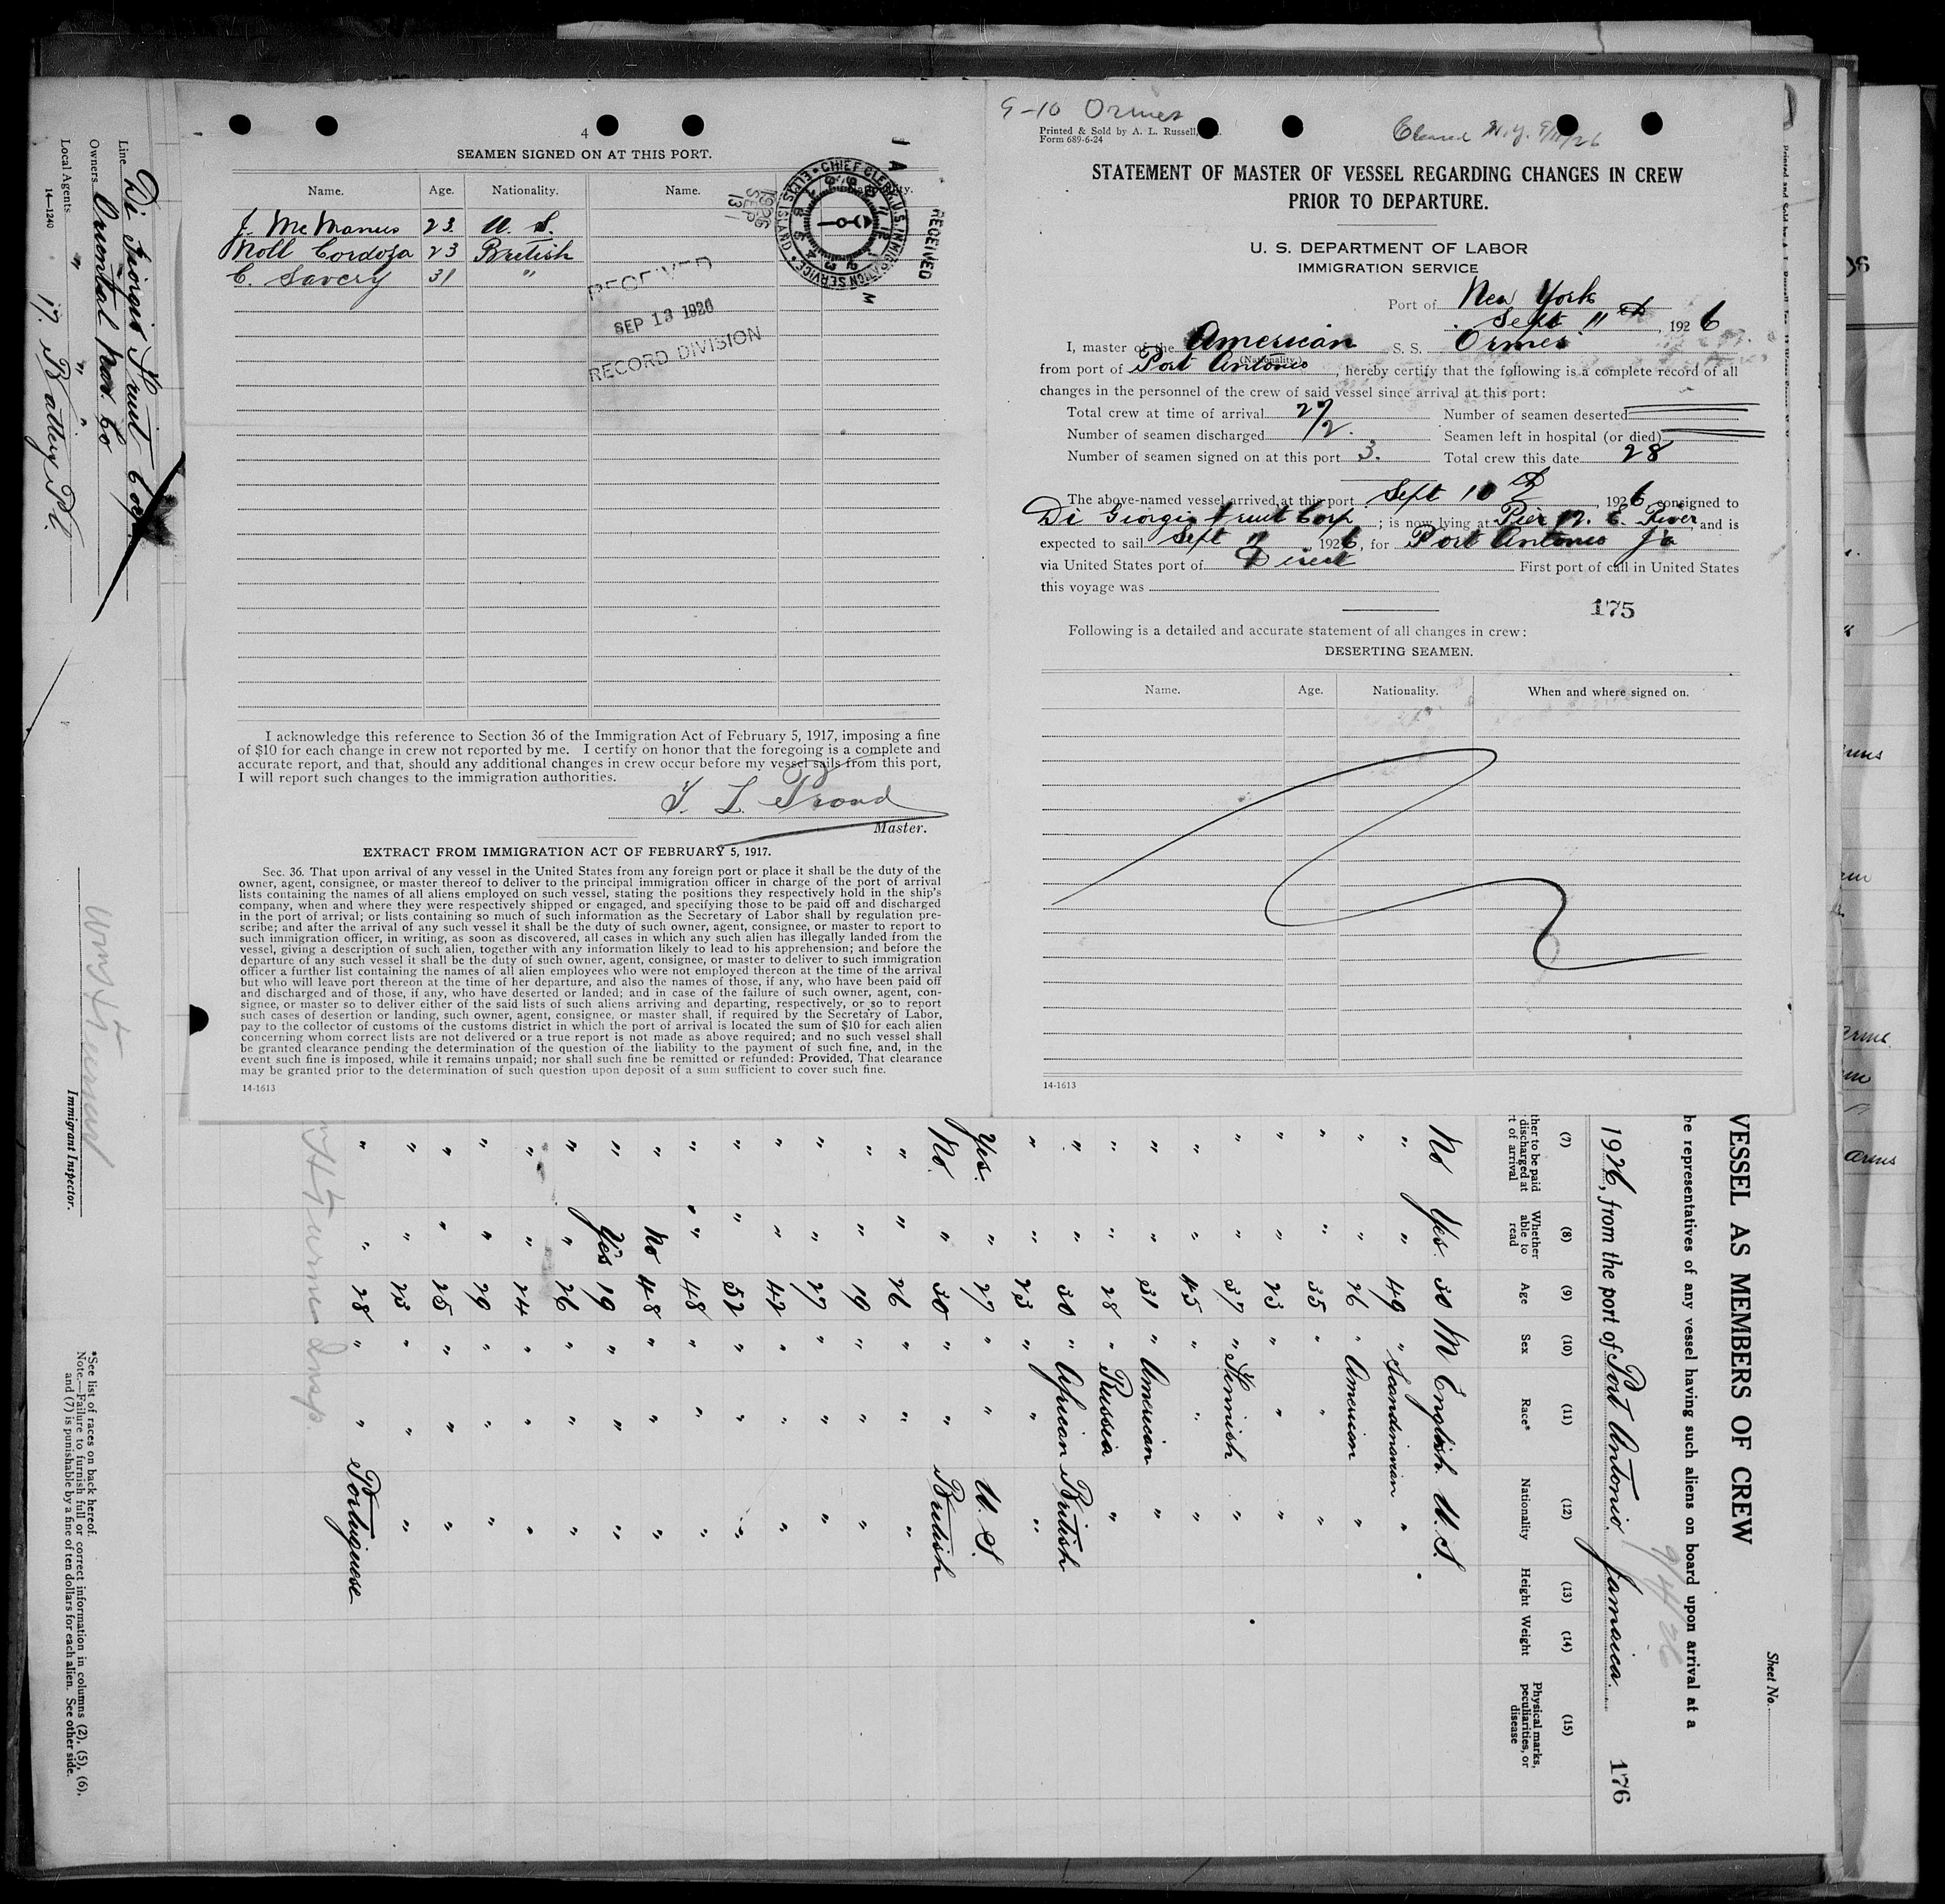 4
SEAMEN SIGNED ON AT THIS PORT.
Name. Age. Nationality. Name.
J. McManus 23. U. S.
Noll Cordoza 23 British
C. Savery 31 "
RECEIVED
SEP 13 1926
RECORD DIVISION
CHIEF CLERK U.S. IMMIGRATION SERVICE ELLIS ISLAND
RECEIVED
1926 SEP 13
I acknowledge this reference to Section 36 of the Immigration Act of February 5, 1917, imposing a fine
of $10 for each change in crew not reported by me. I certify on honor that the foregoing is a complete and
accurate report, and that, should any additional changes in crew occur before my vessel sails from this port,
I will report such changes to the immigration authorities.
Master.
EXTRACT FROM IMMIGRATION ACT OF FEBRUARY 5, 1917.
Sec. 36. That upon arrival of any vessel in the United States from any foreign port or place it shall be the duty of the
owner, agent, consignee, or master thereof to deliver to the principal immigration officer in charge of the port of arrival
lists containing the names of all aliens employed on such vessel, stating the positions they respectively hold in the ship's
company, when and where they were respectively shipped or engaged, and specifying those to be paid off and discharged
in the port of arrival; or lists containing so much of such information as the Secretary of Labor shall by regulation pre-
scribe; and after the arrival of any such vessel it shall be the duty of such owner, agent, consignee, or master to report to
such immigration officer, in writing, as soon as discovered, all cases in which any such alien has illegally landed from the
vessel, giving a description of such alien, together with any information likely to lead to his apprehension; and before the
departure of any such vessel it shall be the duty of such owner, agent, consignee, or master to deliver to such immigration
officer a further list containing the names of all alien employees who were not employed thereon at the time of the arrival
but who will leave port thereon at the time of her departure, and also the names of those, if any, who have been paid off
and discharged and of those, if any, who have deserted or landed; and in case of the failure of such owner, agent, con-
signee, or master so to deliver either of the said lists of such aliens arriving and departing, respectively, or so to report
such cases of desertion or landing, such owner, agent, consignee, or master shall, if required by the Secretary of Labor,
pay to the collector of customs of the customs district in which the port of arrival is located the sum of $10 for each alien
concerning whom correct lists are not delivered or a true report is not made as above required; and no such vessel shall
be granted clearance pending the determination of the question of the liability to the payment of such fine, and, in the
event such fine is imposed, while it remains unpaid; nor shall such fine be remitted or refunded: Provided, That clearance
may be granted prior to the determination of such question upon deposit of a sum sufficient to cover such fine.
14-1613
9-10 Ormes
Printed & Sold by A. L. Russell,
Form 689-6-24
Cleared N.Y. 9/11/26
STATEMENT OF MASTER OF VESSEL REGARDING CHANGES IN CREW
PRIOR TO DEPARTURE.
U. S. DEPARTMENT OF LABOR
IMMIGRATION SERVICE
Port of New York
Sept 11th, 1926
I, master of the American S. S. Ormes
(Nationality.)
from port of Port Antonio, hereby certify that the following is a complete record of all
changes in the personnel of the crew of said vessel since arrival at this port:
Total crew at time of arrival 27 Number of seamen deserted
Number of seamen discharged 2. Seamen left in hospital (or died)
Number of seamen signed on at this port 3. Total crew this date 28
The above-named vessel arrived at this port Sept 10th, 1926, consigned to
Di Giorgio Fruit Corp; is now lying at Pier 19. E. River and is
expected to sail Sept 11 1926, for Port Antonio Ja
via United States port of Direct First port of call in United States
this voyage was
175
Following is a detailed and accurate statement of all changes in crew:
DESERTING SEAMEN.
Name. Age. Nationality. When and where signed on.
14-1613
Line Di Giorgio Fruit Corp
Owners Oriental Nav. Co
Local Agents " " "
17. Battery Pl.
14-1240
Immigrant Inspector.
*See list of races on back hereof.
Note.—Failure to furnish full or correct information in columns (2), (5), (6),
and (7) is punishable by a fine of ten dollars for each alien. See other side.
Sheet No.
VESSEL AS MEMBERS OF CREW
he representatives of any vessel having such aliens on board upon arrival at a
1926, from the port of Port Antonio, Jamaica.
176
(7) (8) (9) (10) (11) (12) (13) (14) (15)
ther to be paid discharged at t of arrival
Whether able to read
Age Sex Race* Nationality Height Weight
Physical marks, peculiarities, or disease
No Yes 30 M English U. S.
" " 49 " Scandinavian "
" " 26 " American "
" " 35 " " "
" " 23 " " "
" " 37 " Finnish "
" " 45 " " "
" " 31 " American "
" " 28 " Russia "
" " 30 " African British
" " 23 " " "
Yes. " 27 " " U. S.
No. " 30 " " British
" " 26 " " "
" " 19 " " "
" " 27 " " "
" " 42 " " "
" " 52 " " "
" " 48 " " "
" No 48 " " "
" Yes 19 " " "
" " 26 " " "
" " 24 " " "
" " 29 " " "
" " 25 " " "
" " 23 " " "
" " 28 " " Portuguese